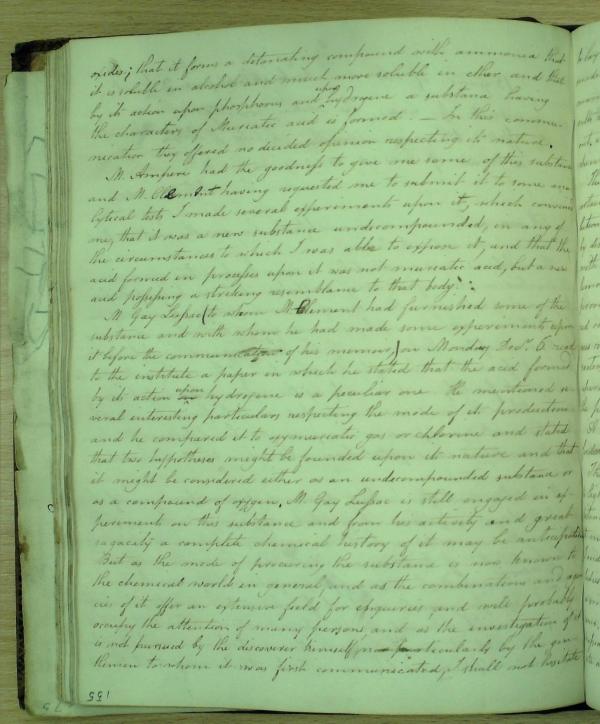 oxides; that it forms a detonating compound with ammonia that
it is soluble in alcohol and much more soluble in ether, and that
by its action upon phosphorus and upon hydrogene a substance having
the characters of Muriatic acid is formed. — In this commu-
nication they offered no decided opinion respecting its nature.
M. Ampere had the goodness to give me some of this substance
and M. Clement having requested me to submit it to some ana
lytical tests, I made several experiments upon it, which convinced
me, that it was a new substance undecompounded, in any of
the circumstances to which I was able to expose it, and that the
acid formed in processes upon it was not muriatic acid, but a new
acid possessing a striking resemblance to that body.
M. Gay Lussac (to whom M. Clement had furnished some of the
substance and with whom he had made some experiments upon
it before the communication of his memoir) on Monday Decr. 6 read
to the institute a paper in which he stated that the acid formed
by its action upon hydrogene is a peculiar one. He mentioned se
veral interesting particulars respecting the mode of its production
and he compared it to oxymuriatic gas or chlorine and stated
that two hypotheses might be founded upon its nature and that
it might be considered either as an undecompounded substance or
as a compound of oxygen. M. Gay Lussac is still engaged in ex-
periments on this substance and from his activity and great
sagacity a complete chemical history of it may be anticipated
But as the mode of procuring the substance is now known to
the chemical world in general, and as the combinations and agen
cies of it offer an extensive field for enquiries, and will probably
occupy the attention of many persons, and as the investigation of it
is not pursued by the discoverer himself, nor particularly by the gen
tlemen to whom it was first communicated, I shall not hesitate
155